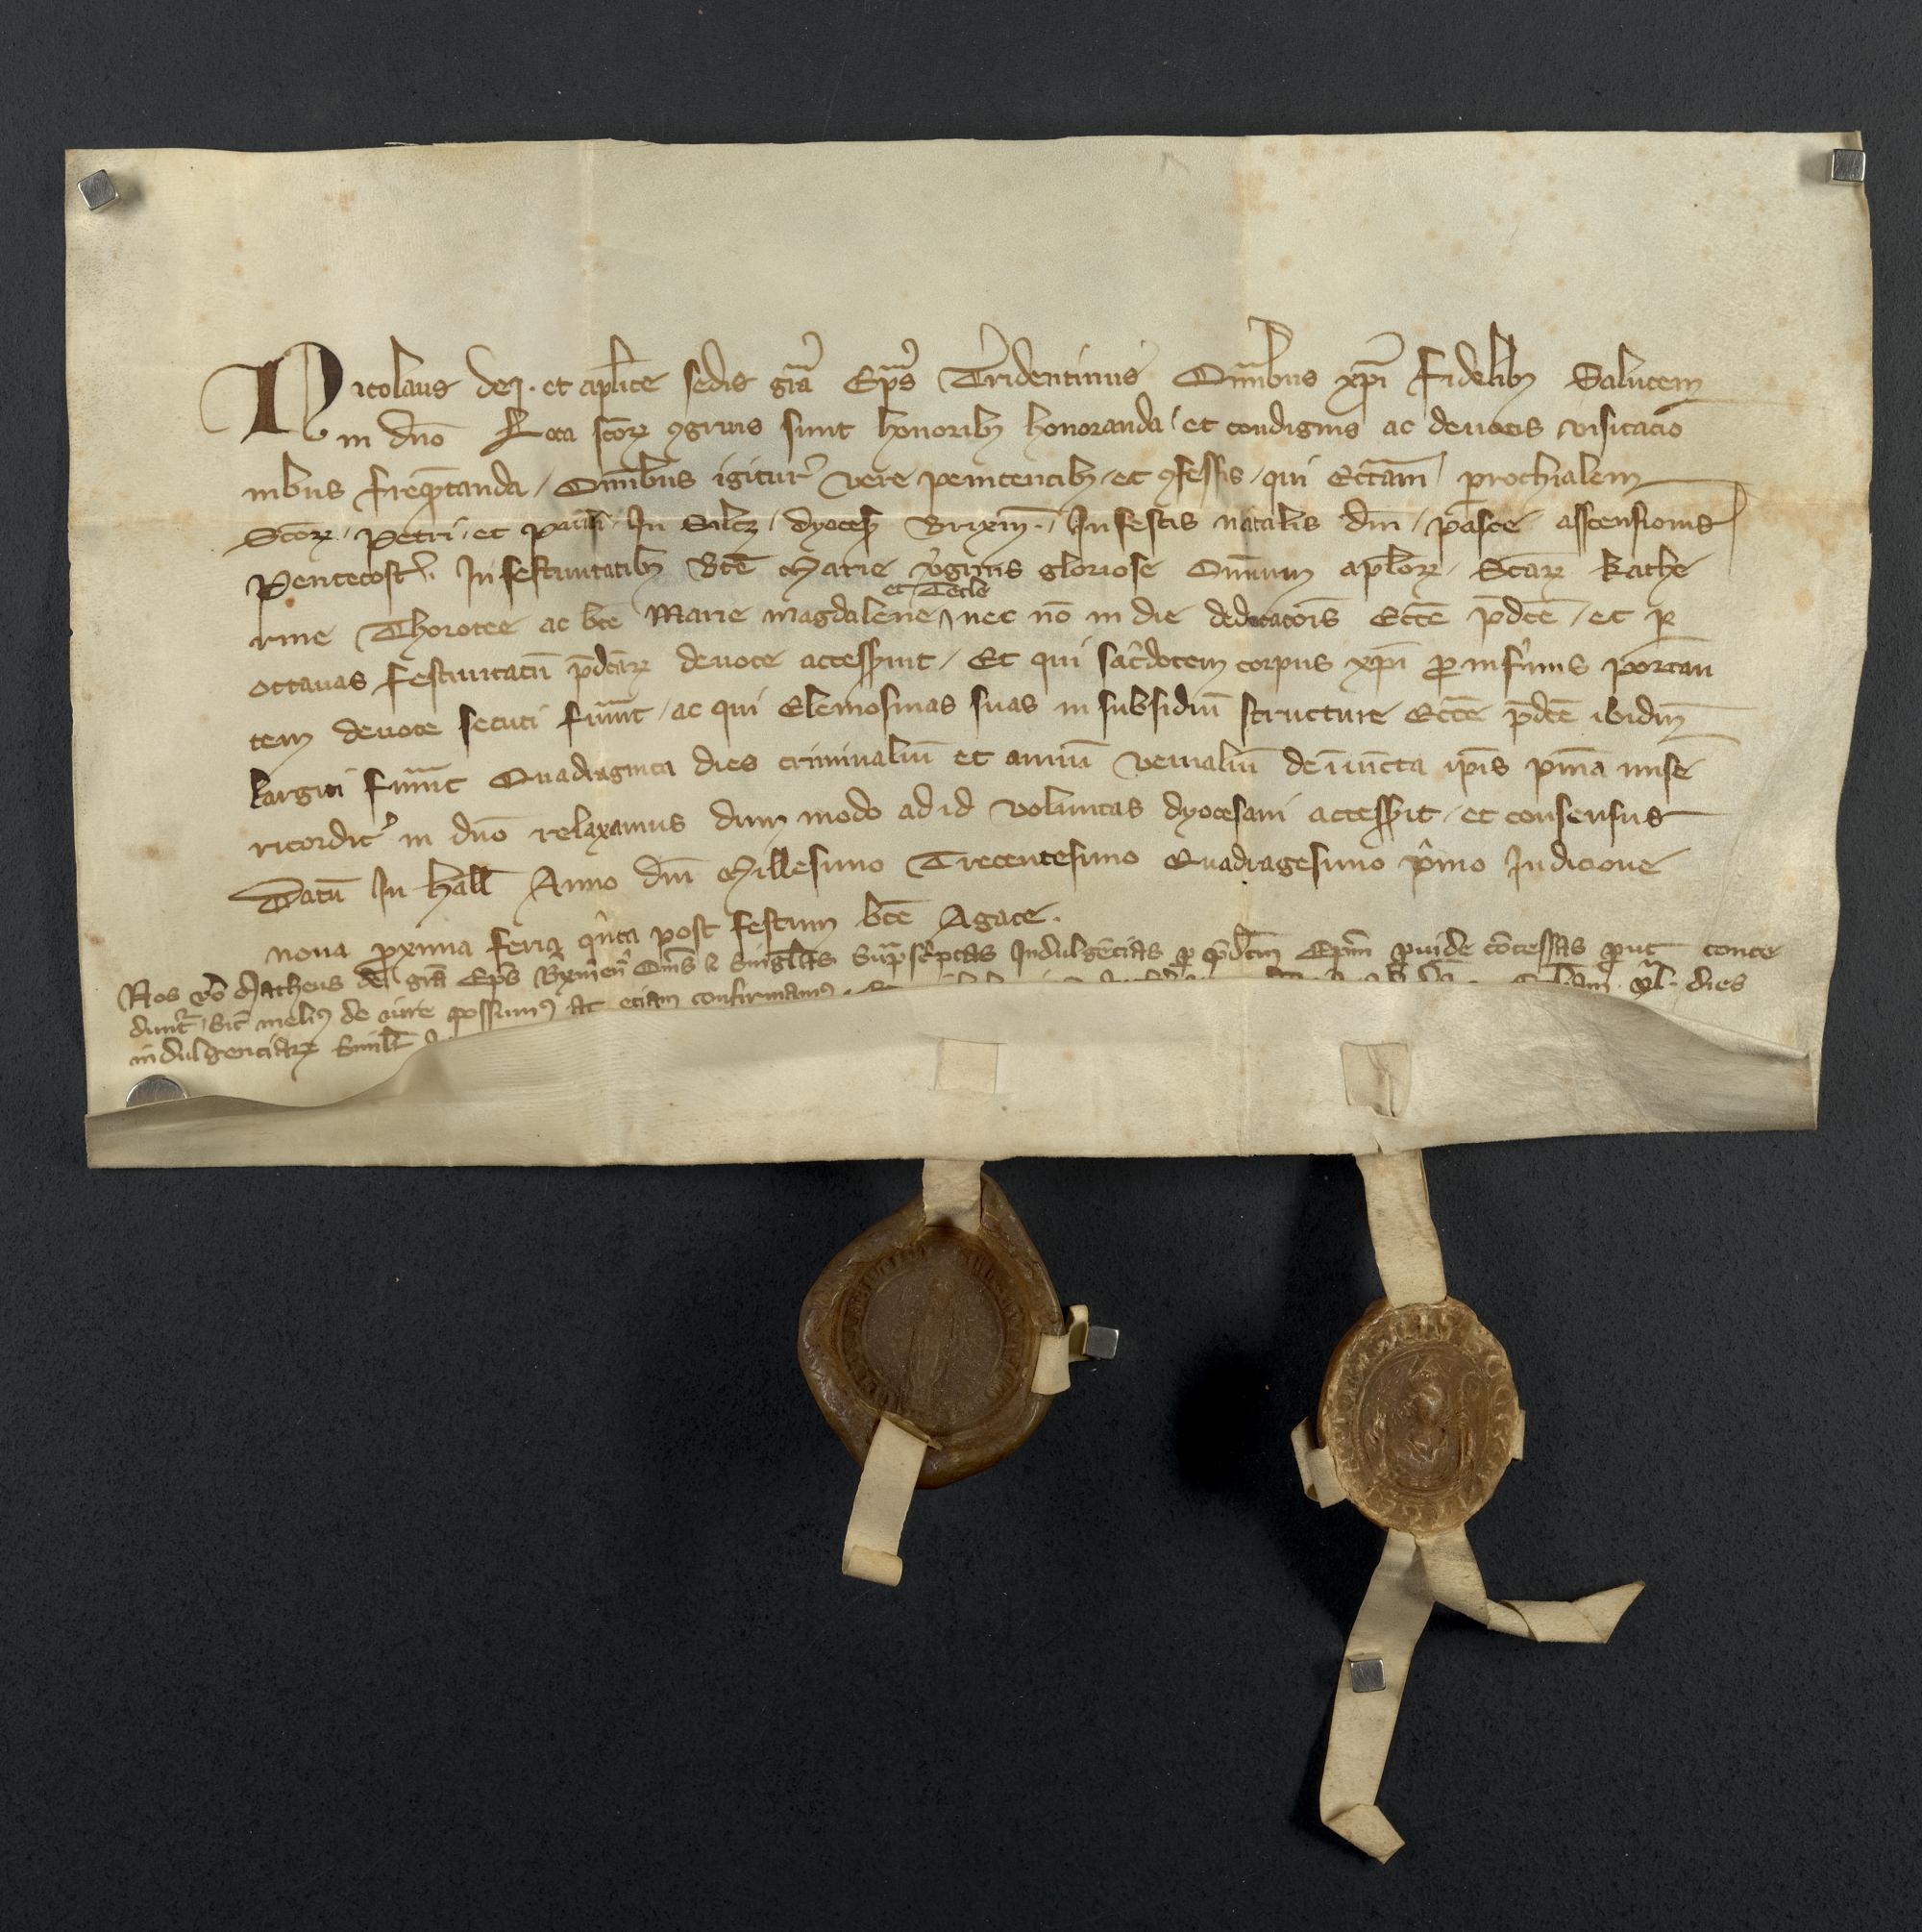 Nicolaus dei · et aplice sedis gra Eps Tridentinus Omibus xpi fidelib Salutem
in dno Loca scoꝝ ꝯgruis sunt honorib honoranda / et condignis ac deuotis visitatio
nibus freqntanda / Omibus igitur vere penitentib / et ꝯfessis / qui Eccam prochialem
Scoꝝ / Petri / et Pauli / In Silcz / dyoces Brixin · / In festis natalis dni / pasce ascensionis
Pentecost · In festiuitatib Bte Marie vgīnis gloriose Omnium aploꝝ / Scaꝝ Kathe
et Tecle
rine Thorotee ac bte Marie magdalene nec no in die dedicacois Ecce pdce / et ꝑ
octauas festiuitatū pdcaꝝ deuote accesserint / Et qui sacdotem corpus xpi ꝓ infirmis portan
tem deuote secuti fuint / ac qui Elemosinas suas in subsidiū structure Ecce pdce ibidm
largiti fuint Quadraginta dies criminaliū et annū venialiū de iniuncta ipis pnia mise
ricordit in dno relaxamus dum modo ad id voluntas dyocesani accesserit / et consensus
Datū In Hall Anno dni Millesimo Trecentesimo Quadragesimo pmo Indicione
nona ꝓxima feria qnta post festum bte Agate ·
Nos vo Matheus dei gra Eps Brxinen Oms & Singlas Supscptas Indulgēcias ꝑ pdcm Epm ꝓuide cōcessas ꝓut conce
dunt / sic meliꝰ de iure possumꝰ ac etiam confirmamꝰ · xl · dies
indulgenciaꝝ Simil